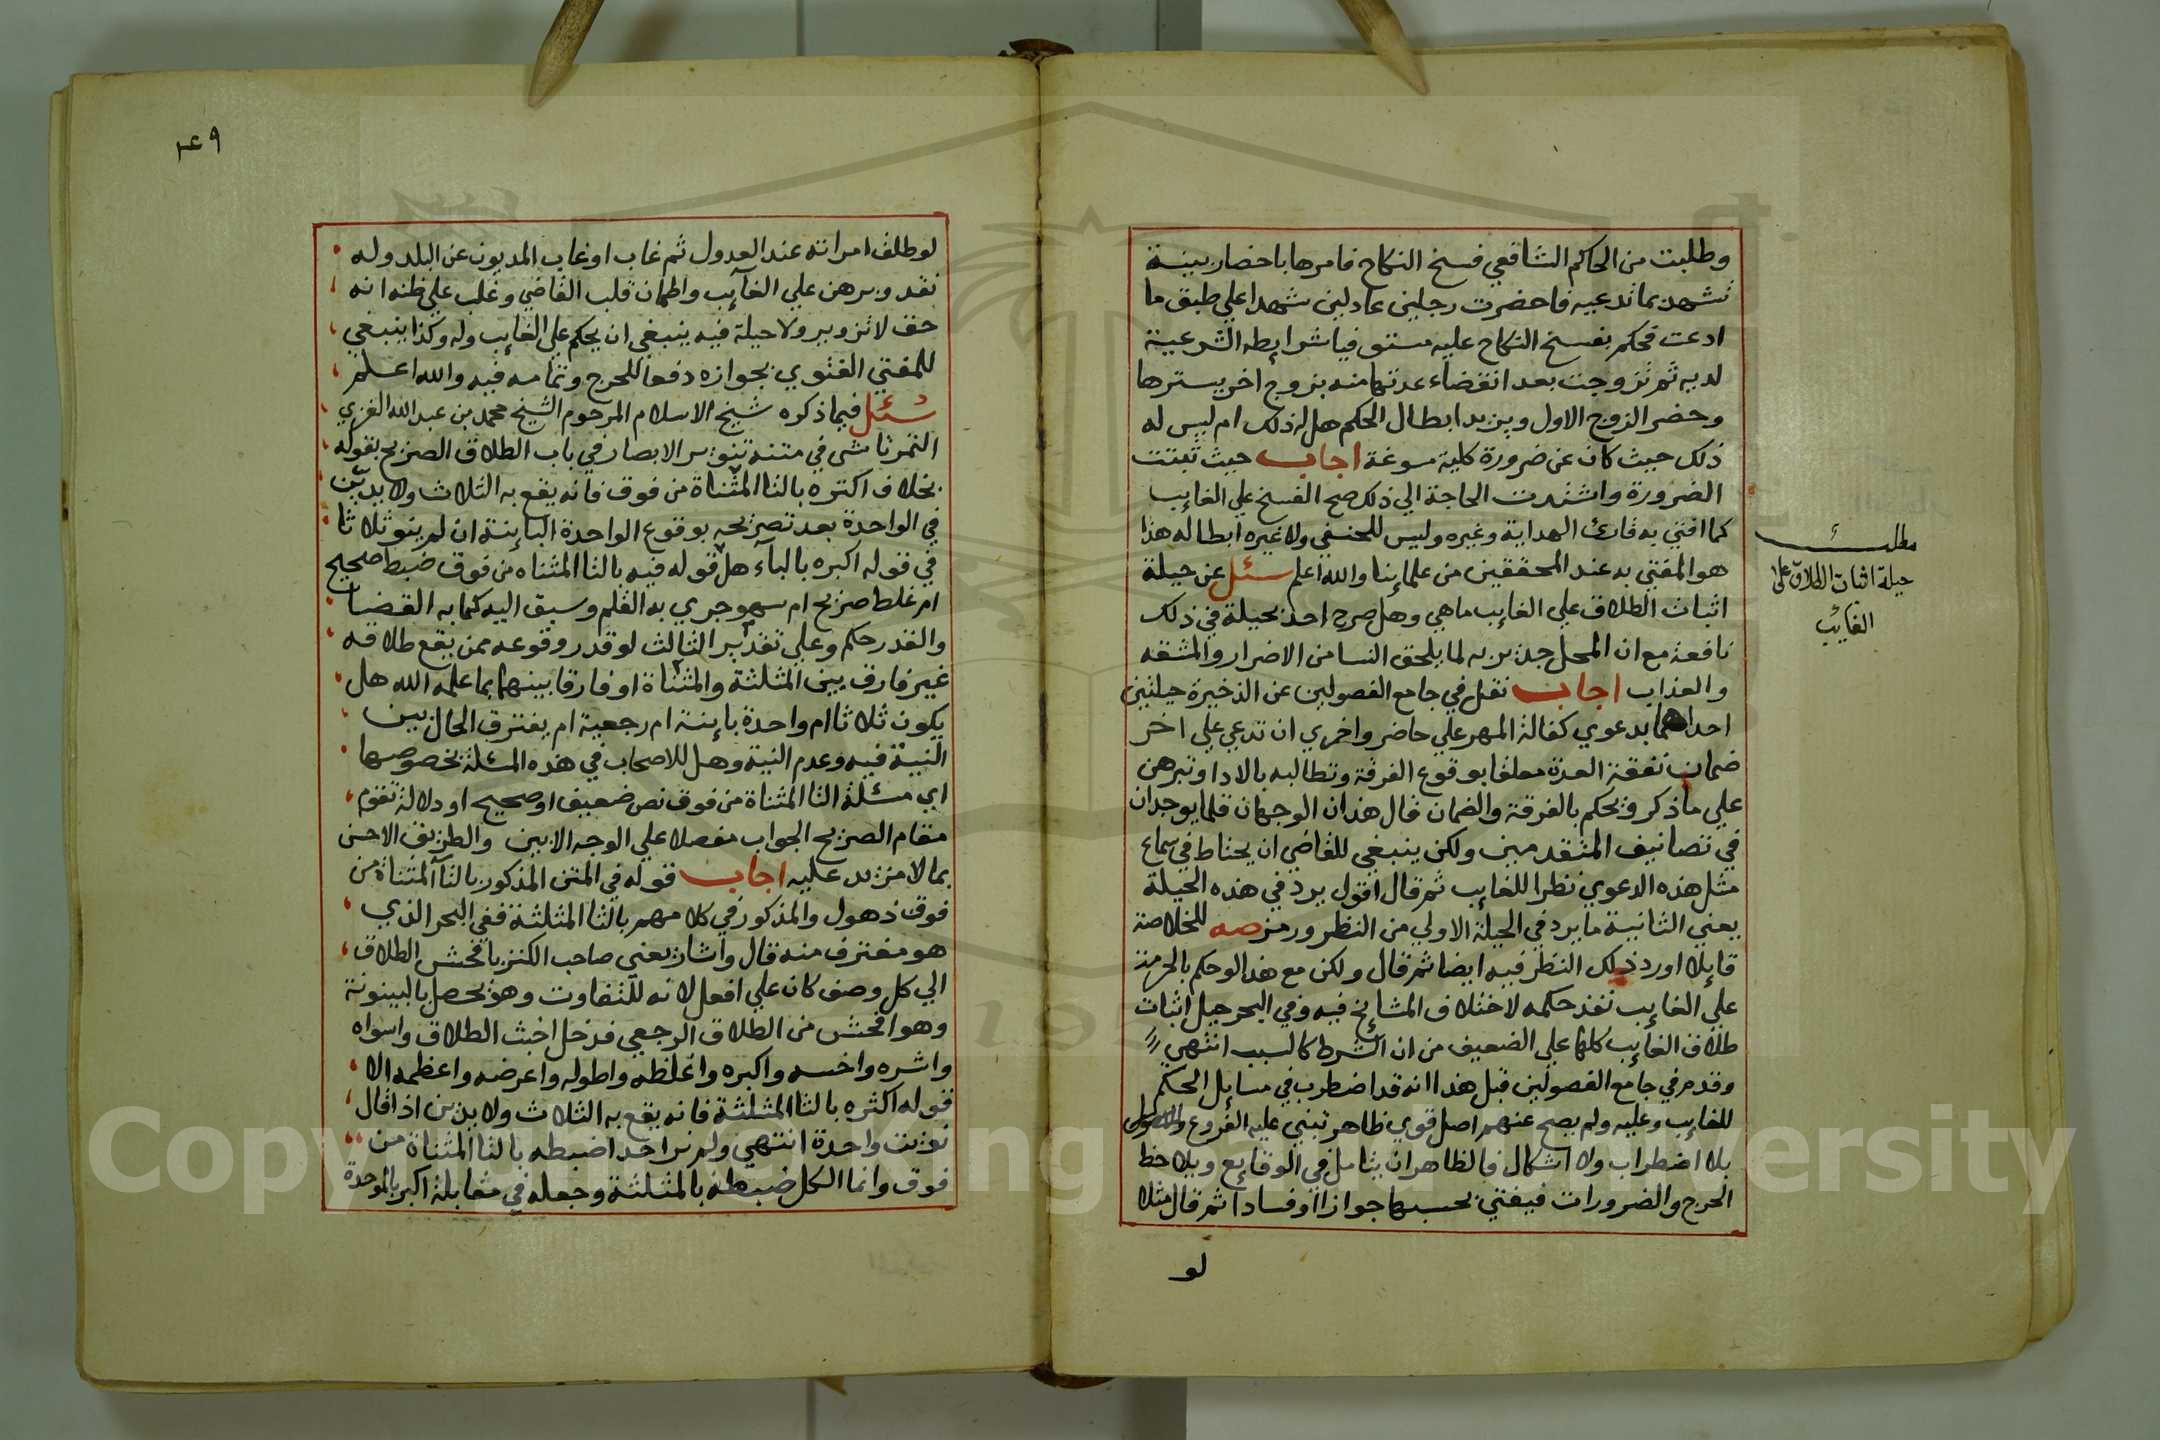 وطلبت من الحاكم الشافعي فسخ النكاح فامرها باحضار بينة
تشهد بما تدعيه فاحضرت رجلين عادلين شهدا علي طبق ما
ادعت فحكم بفسخ النكاح عليه مستوفيا شرايطه الشرعية
لديه ثم تزوجت بعد انقضاء عدتها منه بزوج اخر يسترها
وحضر الزوج الاول ويريد ابطال الحكم هل له ذلك ام ليس له
ذلك حيث كان عن ضرورة كلية مسوغة اجاب حيث ثبتت
الضرورة واشتدت الحاجة الي ذلك صح الفسخ علي الغايب
كما افتي به قارئ الهداية وغيره وليس للحنفي ولا غيره ابطاله هذا
هو المفتي به عند المحققين من علماينا والله اعلم سئل عن حيلة
اثبات الطلاق علي الغايب ماهي وهل صرح احد بحيلة في ذلك
نافعة مع ان المحل جدير به لما يلحق النسا من الاضرار والمشقه
والعذاب اجاب نقل في جامع الفصولين عن الذخيرة حيلتين
احداهما بدعوي كفالة المهر علي حاضر واخري ان تدعي علي اخر
ضمان نفقة العدة معلقا بوقوع الفرقة وتطالبه بالادا وتبرهن
علي ما ذكر فيحكم بالفرقة والضمان قال هذان الوجهان قلما يوجدان
في تصانيف المتقدمين ولكن ينبغي للقاضي ان يحتاط في سماع
مثل هذه الدعوي نظرا للغايب ثم قال اقول يرد في هذه الحيلة
يعني الثانية ما يرد في الحيلة الاولي من النظر ورمز صه للخلاصة
قايلا اورد ذلك النظر فيه ايضا ثم قال ولكن مع هذا لو حكم بالحرمة
علي الغايب نفذ حكمه لاختلاف المشايخ فيه وفي البحر حيل اثبات
طلاق الغايب كلها علي الضعيف من ان الشرط كالسبب انتهي
وقد مر في جامع الفصولين قبل هذا انه قد اضطرب في مسايل الحكم
للغايب وعليه ولم يصح عنهم اصل قوي ظاهر تبني عليه الفروع والاصول
بلا اضطراب ولا اشكال فالظاهر ان يتامل في الوقايع ويلاحظ
الحرج والضرورات فيفتي بحسبها جوازا او فسادا ثم قال مثلا
لو
مطلب
حيلة اثبات الطلاق علي
الغايب
٢٤٩
لو طلق امراته عند العدول ثم غاب او غاب المديون عن البلد وله
نقد وبرهن علي الغايب واطمان قلب القاضي وغلب علي ظنه انه
حق لا تزوير ولا حيلة فيه ينبغي ان يحكم علي الغايب وله وكذا ينبغي
للمفتي الفتوي بجوازه دفعا للحرج وتمامه فيه والله اعلم
سئل فيما ذكره شيخ الاسلام المرحوم الشيخ محمد بن عبد الله الغزي
التمرتاشي في متنه تنوير الابصار في باب الطلاق الصريح بقوله
بخلاف اكتره بالتا المثناة من فوق فانه يقع به الثلاث ولا يدين
في الواحدة بعد تصريحه بوقوع الواحدة الباينة ان لم ينو ثلاثا
في قوله اكبره بالباء هل قوله فيه بالتا المثناه من فوق ضبط صحيح
ام غلط صريح ام سهو جري به القلم وسبق اليه كما به القضا
والقدر حكم وعلي تقدير الثالث لو قدر وقوعه ممن يقع طلاقه
غير فارق بين المثلثة والمثناة او فارقا بينهما بما علمه الله هل
يكون ثلاثا ام واحدة باينة ام رجعية ام يفترق الحال بين
النية فيه وعدم النية وهل للاصحاب في هذه المسئلة بخصوصها
اي مسئلة التا المثناة من فوق نص ضعيف او صحيح او دلالة تقوم
مقام الصريح الجواب مفصلا علي الوجه الابين والطريق الاحسن
بما لا مزيد عليه اجاب قوله في المتن المذكور بالتا المثناة من
فوق ذهول والمذكور في كلامهم بالثا المثلثة ففي البحر الذي
هو مغترف منه قال واشار يعني صاحب الكنز بافحش الطلاق
الي كل وصف كان علي افعل لانه للتفاوت وهو يحصل بالبينونة
وهو افحش من الطلاق الرجعي فدخل اخبث الطلاق واسواه
واشره واخسه واكبره واغلظه واطوله واعرضه واعظمه الا
قوله اكثره بالثا المثلثة فانه يقع به الثلاث ولا يدين اذا قال
نويت واحدة انتهي ولم نر احدا ضبطه بالتا المثناة من
فوق وانما الكل ضبطه بالمثلثة وجعله في مقابلة اكبر بالموحدة